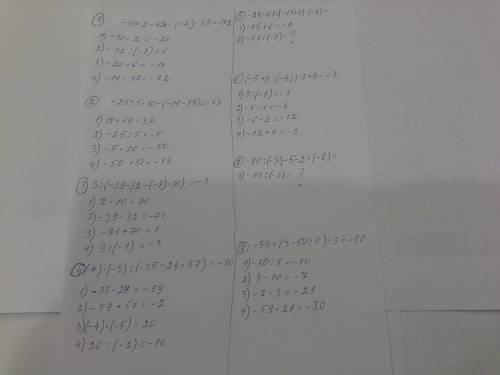 ① -10·2-42:(-2)-58=-72
1) -10·2=-20
2) -12:(-2)=6
3) -20+6=-14
4) -14-58=-72
② -25:5·10-(-18-19)=-13
1) 18+19=37
2) -25:5=-5
3) -5·10=-50
4) -50+37=-13
③ 3:(-39-32-(-7)·10)=-3
1) 7·10=70
2) -39-32=-71
3) -71+70=1
4) 3:(-1)=-3
④ (-4)·(-5):(-35-24+57)=-10
1) -35-24=-59
2) -59+57=-2
3) (-4)·(-5)=20
4) 20:(-2)=-10
⑤ -24-68:(-15+6)·(-6)=
1) -15+6=-9
2) -68:(-9)=?
⑥ (-5+9:(-9))·2+9=-3
1) 9:(-9)=-1
2) -5-1=-6
3) -6·2=-12
4) -12+9=-3
⑦ -80:(-3)-5-2:(-8)=
1) -80:(-3)=?
⑧ -59+(3-50:5)·3=-80
1) -50:5=-10
2) 3-10=-7
3) -7·3=-21
4) -59-21=-80